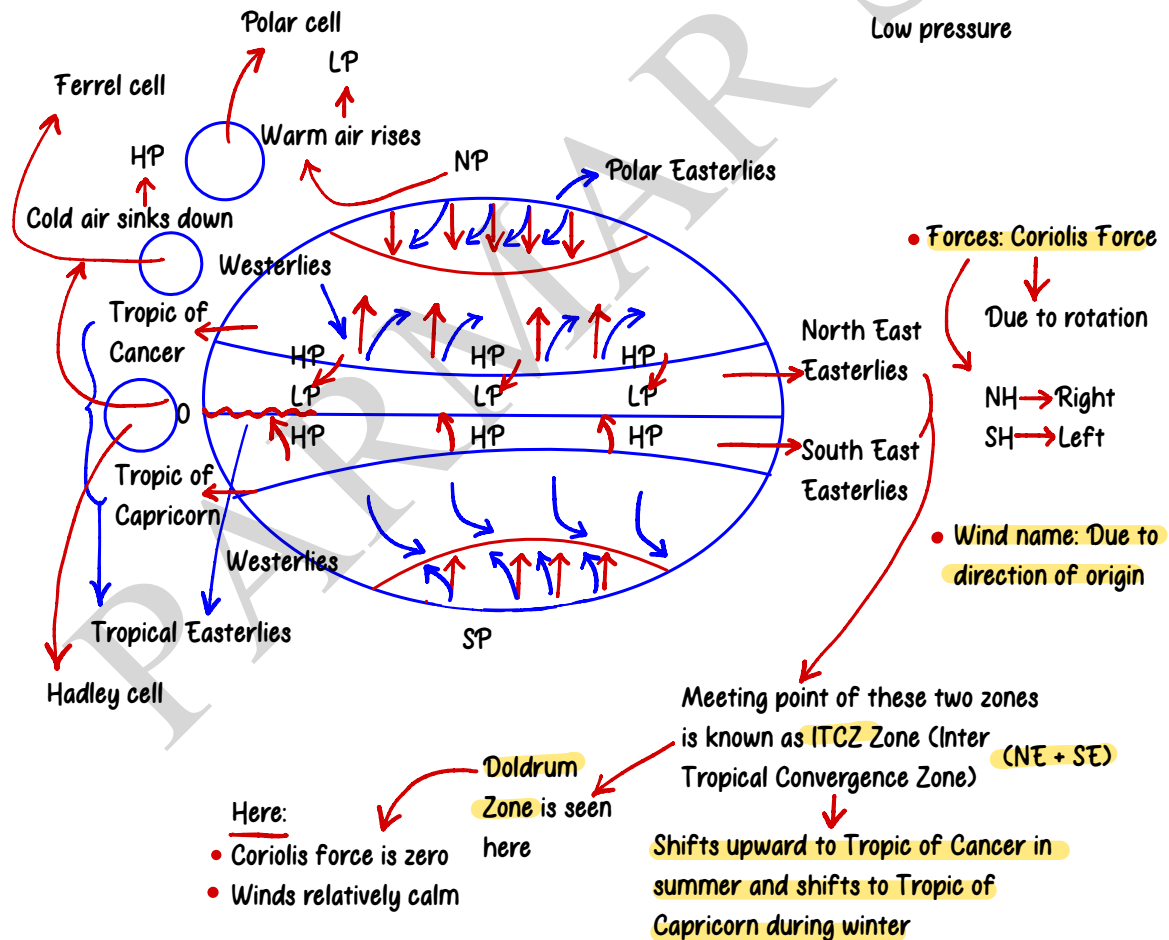 Polar cell
Low pressure
LP
Ferrel cell
Warm air rises
HP
NP
Polar Easterlies
Cold air sinks down
Forces: Coriolis Force
Westerlies
Due to rotation
Tropic of
Cancer
North East
Easterlies
HP HP HP
LP LP LP
NH Right
SH Left
O
HP HP HP
South East
Easterlies
Tropic of
Capricorn
Wind name: Due to
direction of origin
Westerlies
Tropical Easterlies
SP
Hadley cell
Meeting point of these two zones
is known as ITCZ Zone (Inter
Tropical Convergence Zone)
(NE + SE)
Doldrum
Zone is seen
here
Here:
Coriolis force is zero
Winds relatively calm
Shifts upward to Tropic of Cancer in
summer and shifts to Tropic of
Capricorn during winter
PARMAR S